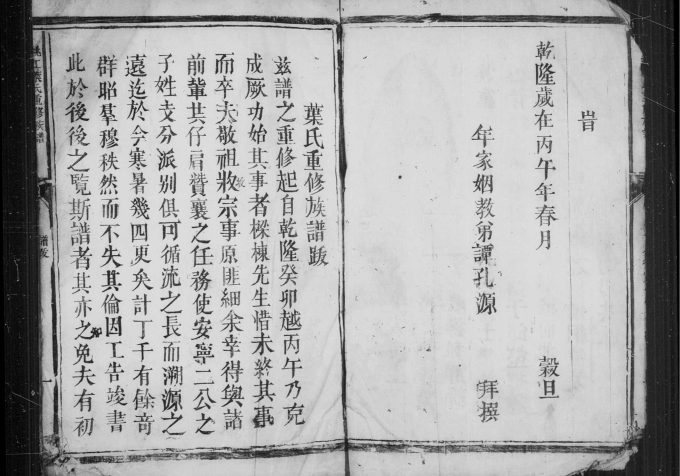 旹
乾隆歲在丙午年春月 穀旦
年家姻教弟譚孔源 拜撰
葉氏重修族譜跋
兹譜之重修起自乾隆癸卯越丙午乃克
成厥功始其事者樑棟先生惜未終其事
而卒夫敬祖收宗事原匪細余幸得與諸
前軰共仔肩贊襄之任務使安寧二公之
子姓支分派别俱可循流之長而溯源之
遠迄於今寒暑幾四更矣計丁千有餘竒
群昭羣穆秩然而不失其倫因工告竣書
此於後後之覧斯譜者其亦知之免夫有初
葉氏重修族譜